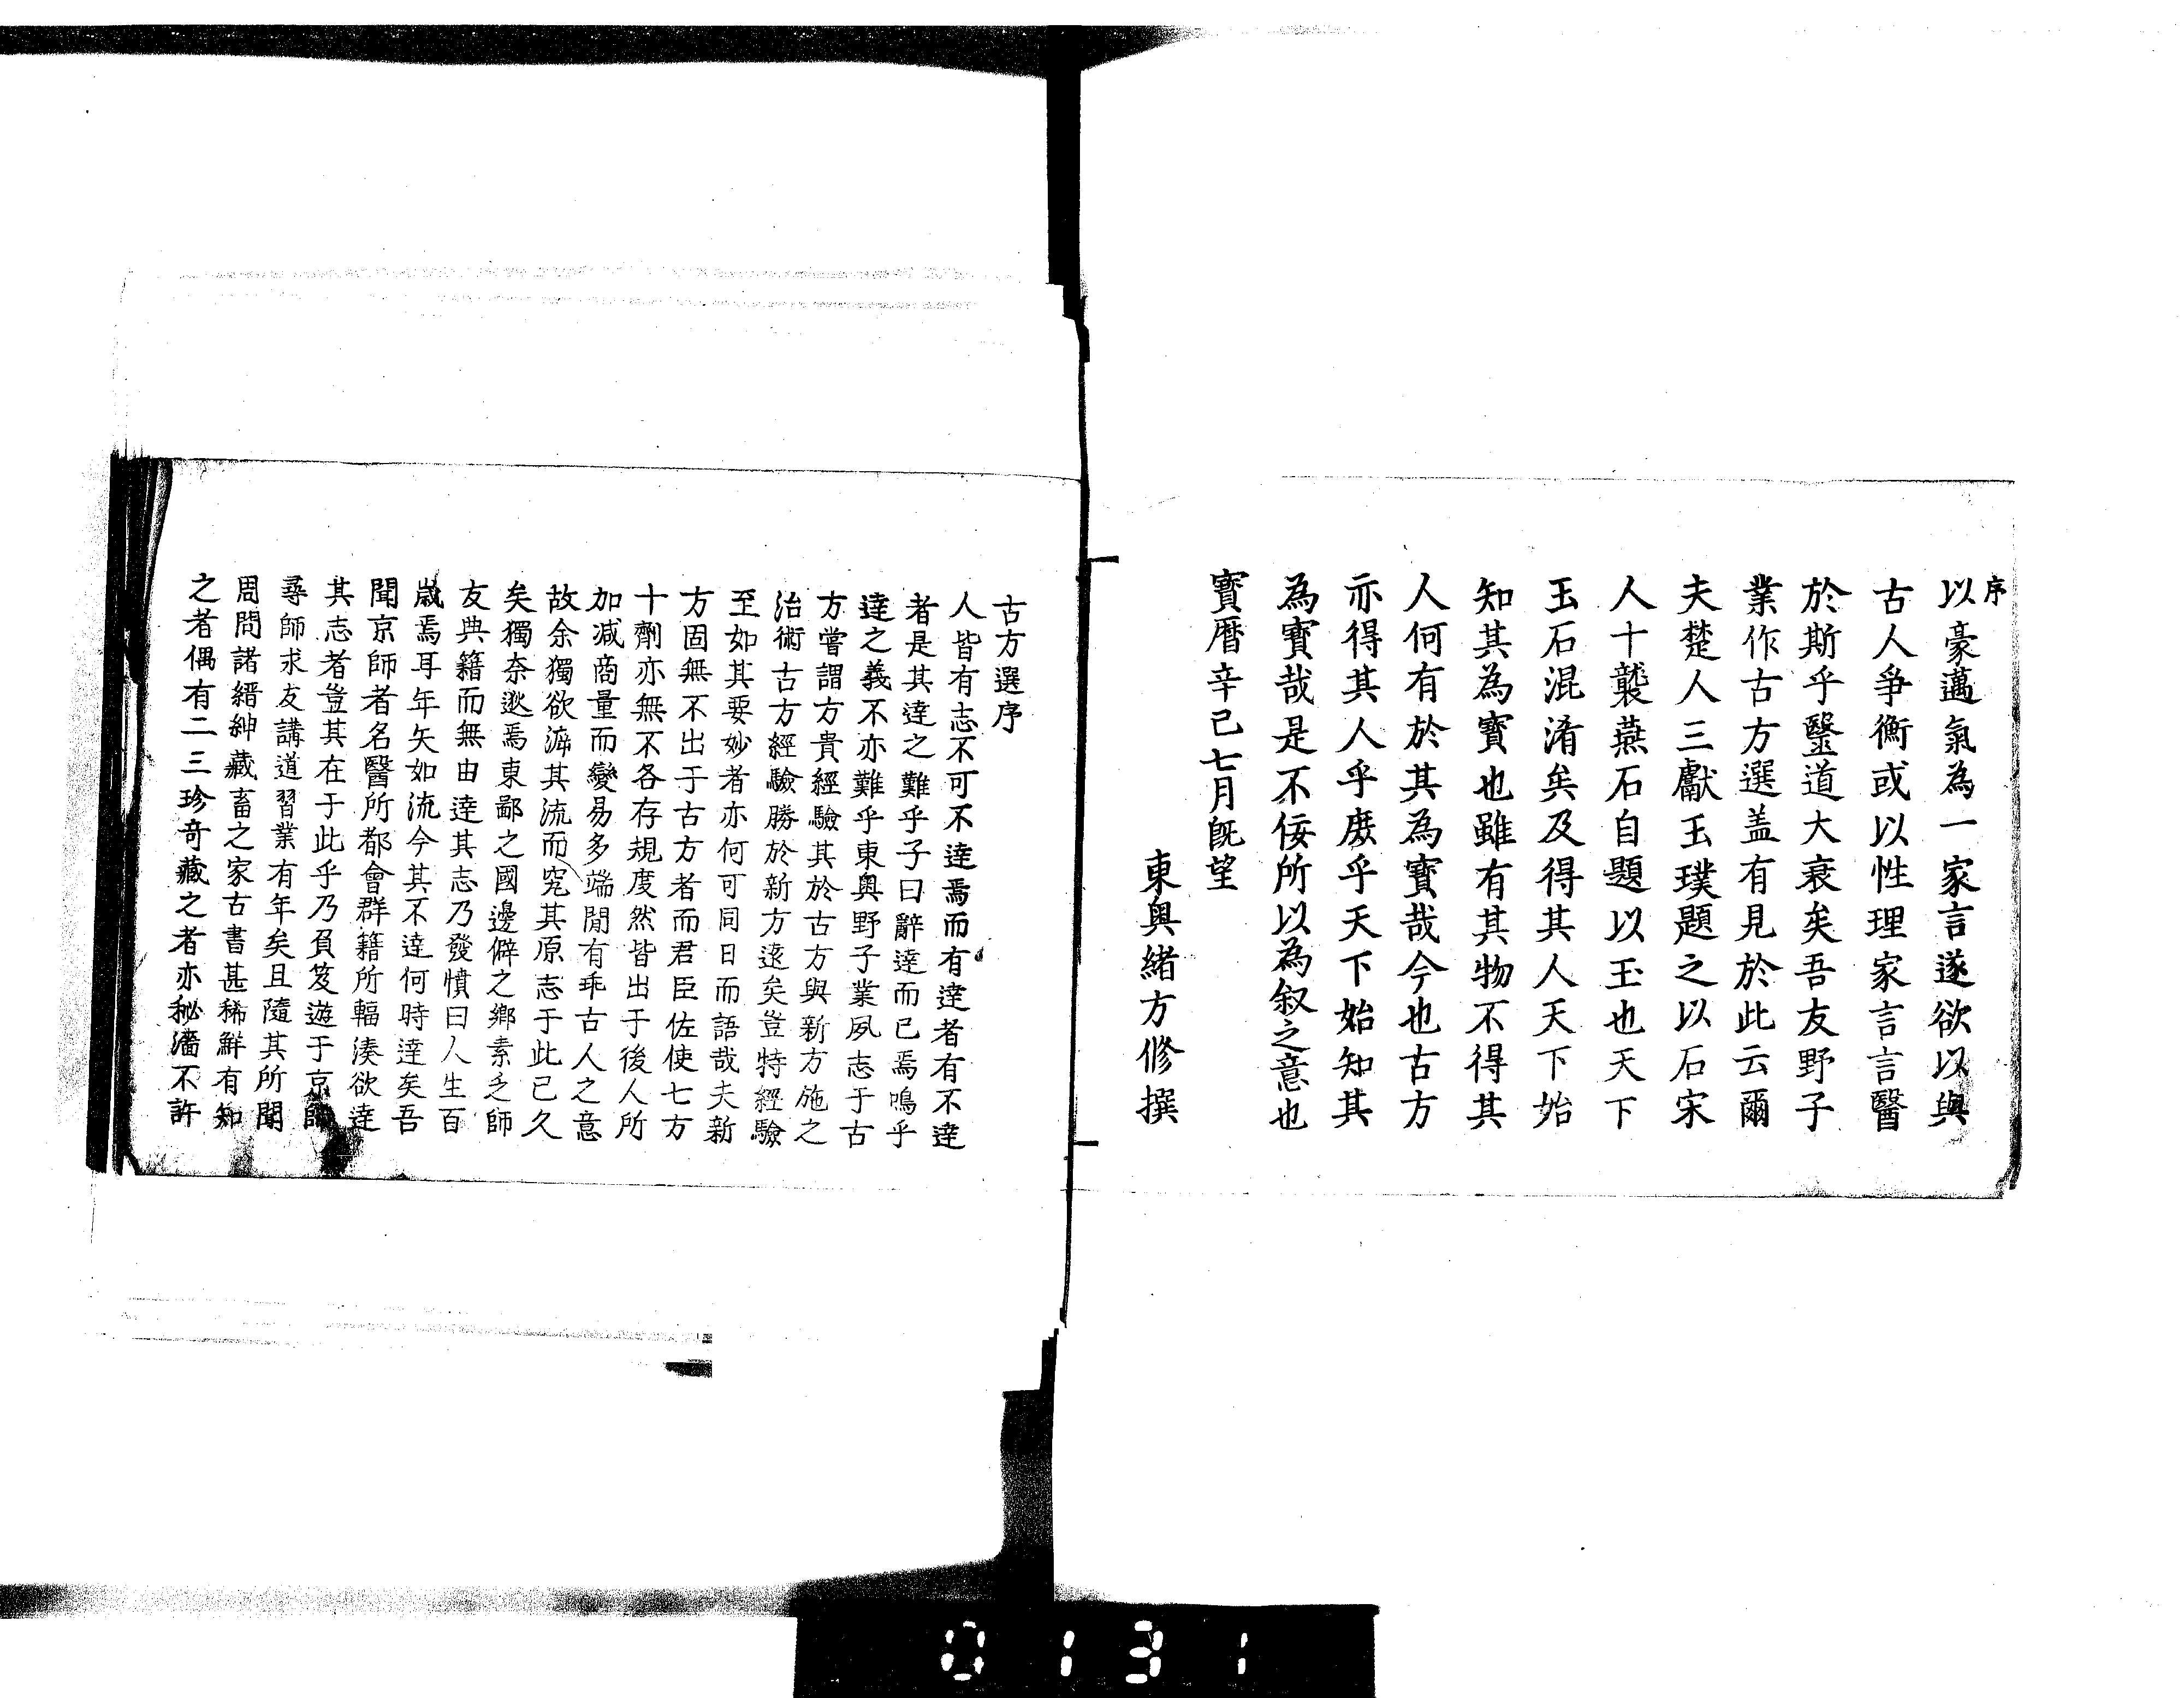 序
以豪邁氣為一家言遂欲以與
古人爭衡或以性理家言言醫
於斯乎醫道大衰矣吾友野子
業作古方選盖有見於此云爾
夫楚人三獻玉璞題之以石宋
人十襲燕石自題以玉也天下
玉石混淆矣及得其人天下始
知其為寳也雖有其物不得其
人何有於其為寳哉今也古方
亦得其人乎庻乎天下始知其
為寳哉是不佞所以為叙之意也
寳曆辛巳七月既望
東奥緒方脩撰
古方選序
人皆有志不可不達焉而有達者有不達
者是其達之難乎子曰辭達而已焉鳴乎
達之義不亦難乎東奥野子業夙志于古
方嘗謂方貴經驗其於古方與新方施之
治術古方經驗勝於新方遠矣豈特經驗
至如其要妙者亦何可同日而語哉夫新
方固無不出于古方者而君臣佐使七方
十劑亦無不各存規度然皆出于後人所
加减商量而變易多端間有乖古人之意
故余獨欲泝其流而究其原志于此已久
矣獨奈逖焉東鄙之國邊僻之鄉素乏師
友典籍而無由達其志乃發憤曰人生百
歳焉耳年矢如流今其不達何時達矣吾
聞京師者名醫所都會群籍所輻湊欲達
其志者豈其在于此乎乃負笈遊于京師
尋師求友講道習業有年矣且隨其所聞
周問諸縉紳藏畜之家古書甚稀鮮有知
之者偶有二三珍奇藏之者亦秘不許
0131